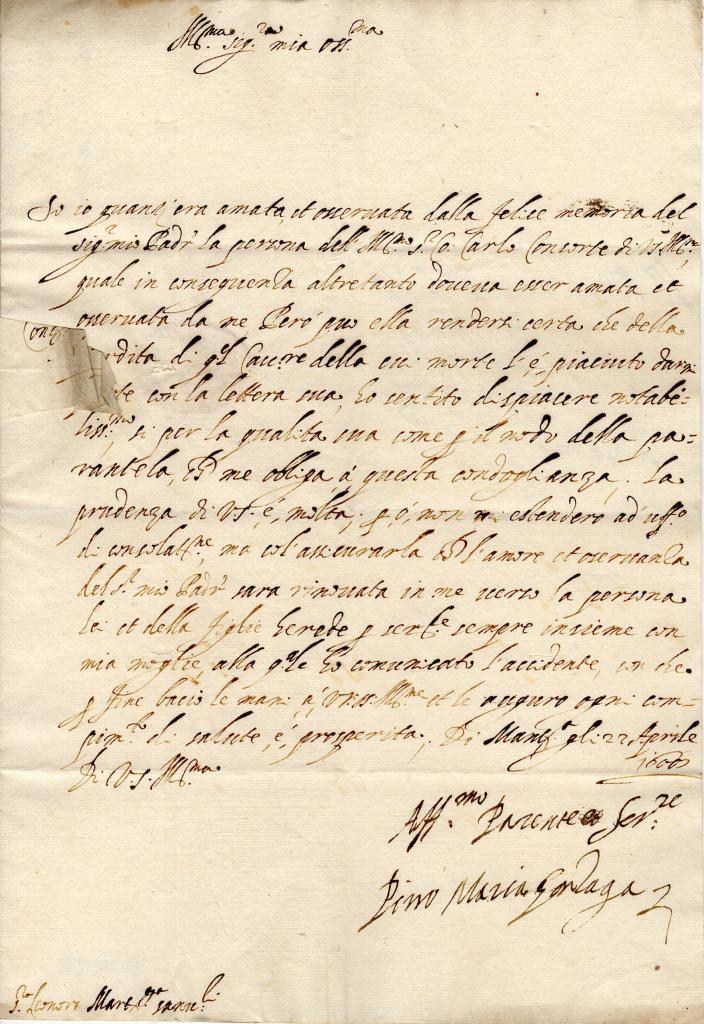 Ill.ma sig.ra mia oss.ma
So io quant'era amata, et osservata dalla felice memoria del
sig.r mio Padr' la persona dell' Ill.mo s.r Carlo Consorte di V.S. Ill.ma,
quale in consequenza altretanto doveva esser amata et
osservata da me Però puo ella rendersi certa che della
perdita di q.l Cav.re della cui morte l'è, piaciuto darmi
parte con la lettera sua, ho sentito dispiacere notabi-
liss.mo, si per la qualita sua come p il nodo della pa-
rentela, ch' me obliga, à questa condoglianza. La
prudenza di V.S. è, molta, p ò, non mi estendero ad uff.o
di consolat.ne, ma col' assicurarla ch' l'amore et osservanza
del s.r mio Padr' sara rinovata in me verso la persona
lei et della figlie herede p ser.le sempre insieme con
mia moglie, alla q.le ho comunicato l'accidente, con che
p fine bacio le mani à, V.S. Ill.ma et le auguro ogni com-
pim.to di salute, è, prosperita, Di Mant.a gli 22 Aprile
Di V.S. Ill.ma
Aff.mo Parente et Ser.re
Pirro Maria Gonzaga
S.ra Leonora